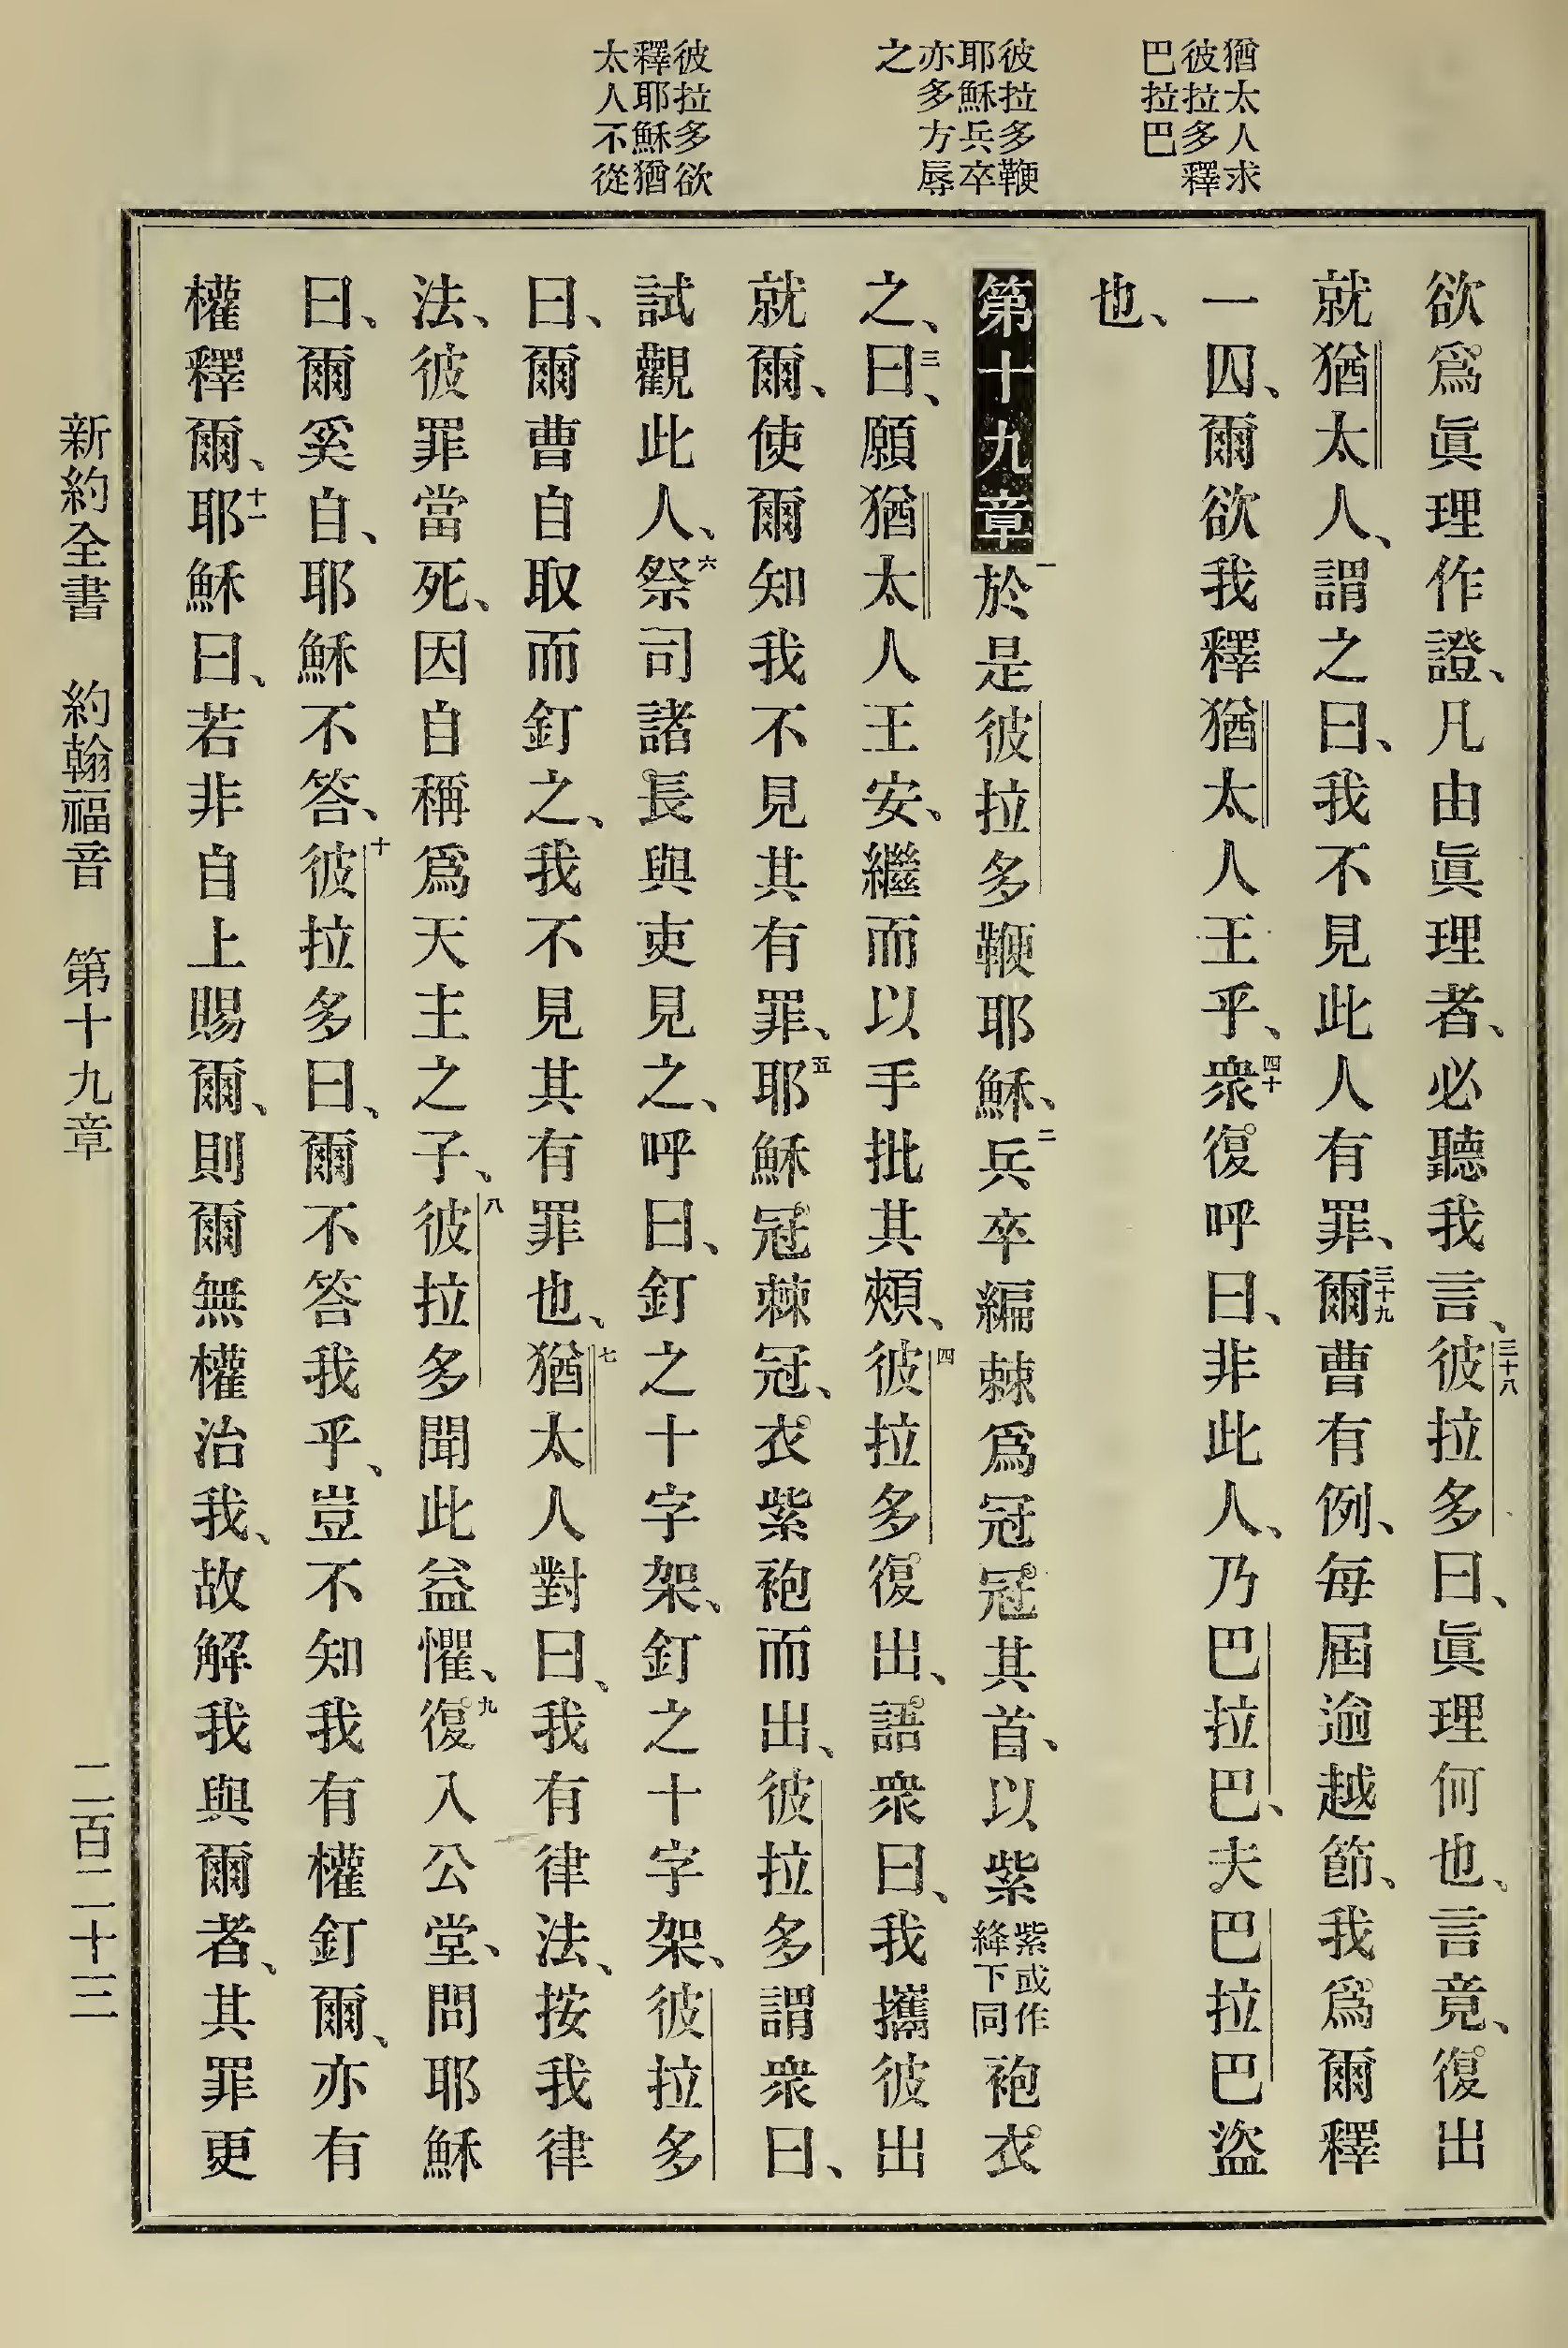 猶太人求
彼拉多釋
巴拉巴
彼拉多鞭
耶穌兵卒
亦多方辱
之
彼拉多欲
釋耶穌猶
太人不從
欲爲眞理作證、凡由眞理者、必聽我言、三十八彼拉多曰、眞理何也、言竟、復出
就猶太人、謂之曰、我不見此人有罪、三十九爾曹有例、每屆逾越節、我爲爾釋
一囚、爾欲我釋猶太人王乎、四十衆復呼曰、非此人、乃巴拉巴、夫巴拉巴盜
也、
第十九章一於是彼拉多鞭耶穌、二兵卒編棘爲冠冠其首、以紫紫或作絳下同袍衣
之、三曰、願猶太人王安、繼而以手批其頰、四彼拉多復出、語衆曰、我攜彼出
就爾、使爾知我不見其有罪、五耶穌冠棘冠、衣紫袍而出、彼拉多謂衆曰、
試觀此人、六祭司諸長與吏見之、呼曰、釘之十字架、釘之十字架、彼拉多
曰、爾曹自取而釘之、我不見其有罪也、七猶太人對曰、我有律法、按我律
法、彼罪當死、因自稱爲天主之子、八彼拉多聞此益懼、九復入公堂、問耶穌
曰、爾奚自、耶穌不答、十彼拉多曰、爾不答我乎、豈不知我有權釘爾、亦有
權釋爾、十一耶穌曰、若非自上賜爾、則爾無權治我、故解我與爾者、其罪更
新約全書 約翰福音 第十九章 二百二十三